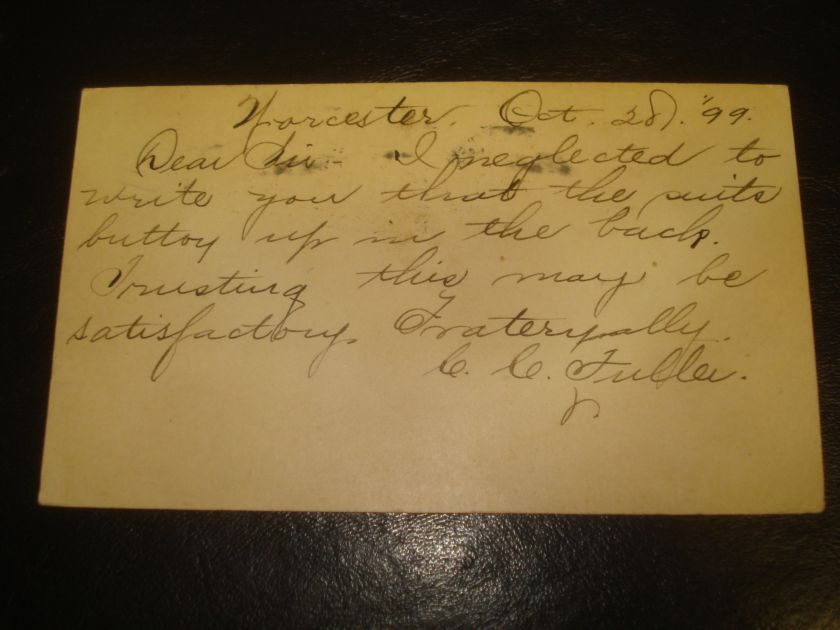 Worcester. Oct. 28. '99.
Dear Sir - I neglected to
write you that the suits
button up in the back.
Trusting this may be
satisfactory. Fraternally.
C. C. Fuller.